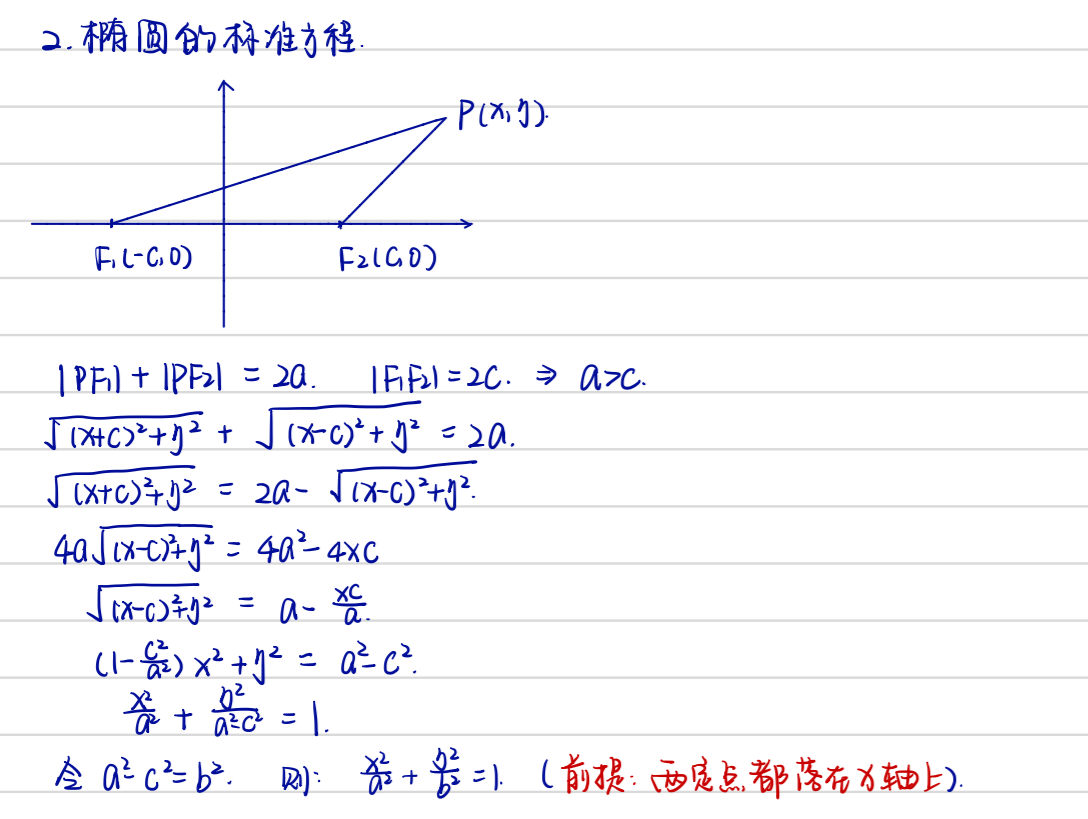 2. 椭圆的标准方程.
P(x,y).
F₁(-c,0) F₂(c,0)
|PF₁| + |PF₂| = 2a. |F₁F₂| = 2c. ⇒ a>c.
√((x+c)²+y²) + √((x-c)²+y²) = 2a.
√((x+c)²+y²) = 2a - √((x-c)²+y²).
4a√((x-c)²+y²) = 4a² - 4xc
√((x-c)²+y²) = a - xc/a.
(1 - c²/a²) x² + y² = a² - c².
x²/a² + y²/(a²-c²) = 1.
令 a² - c² = b². 则: x²/a² + y²/b² = 1. (前提: 两定点都落在x轴上).